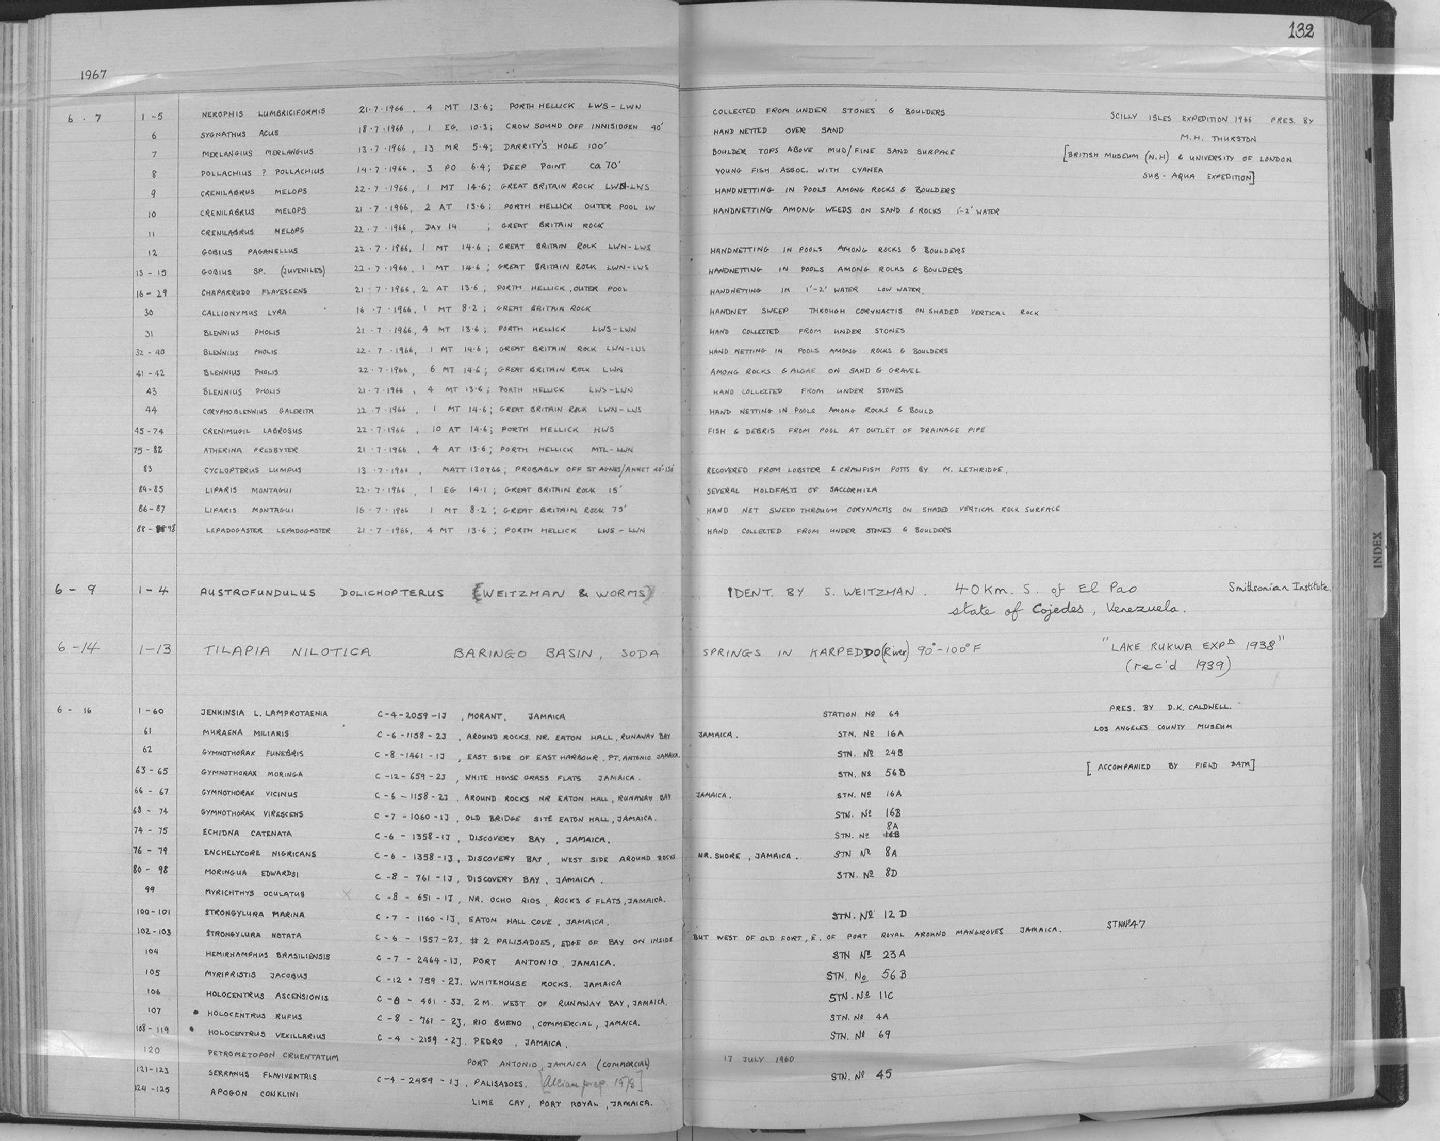 132
1967
6 . 7 1 - 5 NEROPHIS LUMBRICIFORMIS 21·7·1966 , 4 MT 13·6; PORTH HELLICK LWS-LWN COLLECTED FROM UNDER STONES & BOULDERS SCILLY ISLES EXPEDITION 1966 PRES. BY
6 SYGNATHUS ACUS 18·7·1966 , 1 EG. 10·3; CROW SOUND OFF INNISIDGEN 40' HAND NETTED OVER SAND M.H. THURSTON
7 MERLANGIUS MERLANGIUS 13·7·1966, 13 MR 5·4; DARRITY'S HOLE 100' BOULDER TOPS ABOVE MUD/FINE SAND SURFACE [BRITISH MUSEUM (N.H) & UNIVERSITY OF LONDON
8 POLLACHIUS ? POLLACHIUS 14·7·1966, 3 PO 6·4; DEEP POINT CA 70' YOUNG FISH ASSOC. WITH CYANEA SUB-AQUA EXPEDITION]
9 CRENILABRUS MELOPS 22·7·1966, 1 MT 14·6; GREAT BRITAIN ROCK LWN-LWS HANDNETTING IN POOLS AMONG ROCKS & BOULDERS
10 CRENILABRUS MELOPS 21·7·1966, 2 AT 13·6; PORTH HELLICK OUTER POOL LW HANDNETTING AMONG WEEDS ON SAND & ROCKS 1-2' WATER
11 CRENILABRUS MELOPS 22·7·1966, DAY 14 ; GREAT BRITAIN ROCK
12 GOBIUS PAGANELLUS 22·7·1966, 1 MT 14·6; GREAT BRITAIN ROCK LWN-LWS HANDNETTING IN POOLS AMONG ROCKS & BOULDERS
13 - 15 GOBIUS SP. (JUVENILES) 22·7·1966, 1 MT 14·6; GREAT BRITAIN ROCK LWN-LWS HANDNETTING IN POOLS AMONG ROCKS & BOULDERS
16 - 29 CHAPARRUDO FLAVESCENS 21·7·1966, 2 AT 13·6; PORTH HELLICK, OUTER POOL HANDNETTING IN 1'-2' WATER LOW WATER.
30 CALLIONYMUS LYRA 16·7·1966, 1 MT 8·2; GREAT BRITAIN ROCK HANDNET SWEEP THROUGH CORYNACTIS ON SHADED VERTICAL ROCK
31 BLENNIUS PHOLIS 21·7·1966, 4 MT 13·6; PORTH HELLICK LWS-LWN HAND COLLECTED FROM UNDER STONES
32 - 40 BLENNIUS PHOLIS 22·7·1966, 1 MT 14·6; GREAT BRITAIN ROCK LWN-LWS HAND NETTING IN POOLS AMONG ROCKS & BOULDERS
41 - 42 BLENNIUS PHOLIS 22·7·1966, 6 MT 14·6; GREAT BRITAIN ROCK LWN AMONG ROCKS & ALGAE ON SAND & GRAVEL
43 BLENNIUS PHOLIS 21·7·1966, 4 MT 13·6; PORTH HELLICK LWS-LWN HAND COLLECTED FROM UNDER STONES
44 CORYPHOBLENNIUS GALERITA 22·7·1966, 1 MT 14·6; GREAT BRITAIN ROCK LWN-LWS HAND NETTING IN POOLS AMONG ROCKS & BOULD
45 - 74 CRENIMUGIL LABROSUS 22·7·1966, 10 AT 14·6; PORTH HELLICK HWS FISH & DEBRIS FROM POOL AT OUTLET OF DRAINAGE PIPE
75 - 82 ATHERINA PRESBYTER 21·7·1966, 4 AT 13·6; PORTH HELLICK MTL-LWN
83 CYCLOPTERUS LUMPUS 13·7·1966, MATT 130766; PROBABLY OFF ST AGNES/ANNET RECOVERED FROM LOBSTER & CRAWFISH POTTS BY M. LETHRIDGE.
84-85 LIPARIS MONTAGUI 22·7·1966, 1 EG 14·1; GREAT BRITAIN ROCK 15' SEVERAL HOLDFASTS OF SACCORHIZA
86-87 LIPARIS MONTAGUI 16·7·1966 1 MT 8·2; GREAT BRITAIN ROCK 75' HAND NET SWEEP THROUGH CORYNACTIS ON SHADED VERTICAL ROCK SURFACE
88 - 98 LEPADOGASTER LEPADOGASTER 21·7·1966, 4 MT 13·6; PORTH HELLICK LWS-LWN HAND COLLECTED FROM UNDER STONES & BOULDERS
6 - 9 1-4 AUSTROFUNDULUS DOLICHOPTERUS (WEITZMAN & WORMS) IDENT. BY S. WEITZMAN. 40km. S. of El Pao Smithsonian Institute.
state of Cojedes, Venezuela.
6 -14 1-13 TILAPIA NILOTICA BARINGO BASIN, SODA SPRINGS IN KARPEDDO (River) 90°-100°F "LAKE RUKWA EXPN 1938"
(rec'd 1939)
6 - 16 1-60 JENKINSIA L. LAMPROTAENIA C-4-2059-1J , MORANT, JAMAICA STATION No 64 PRES. BY D.K. CALDWELL.
61 MURAENA MILIARIS C-6-1158-2J , AROUND ROCKS, NR. EATON HALL, RUNAWAY BAY JAMAICA. STN. No 16A LOS ANGELES COUNTY MUSEUM
62 GYMNOTHORAX FUNEBRIS C-8-1461-1J , EAST SIDE OF EAST HARBOUR, PT. ANTONIO JAMAICA STN. No 24B
63-65 GYMNOTHORAX MORINGA C-12-659-2J , WHITE HOUSE GRASS FLATS JAMAICA. STN. No 56B [ACCOMPANIED BY FIELD DATA]
66 - 67 GYMNOTHORAX VICINUS C-6-1158-2J , AROUND ROCKS NR EATON HALL, RUNAWAY BAY JAMAICA. STN. No 16A
68 - 74 GYMNOTHORAX VIRESCENS C-7-1060-1J , OLD BRIDGE SITE EATON HALL, JAMAICA. STN. No 16B
74 - 75 ECHIDNA CATENATA C-6-1358-1J , DISCOVERY BAY , JAMAICA. STN. No 16B 8A
76 - 79 ENCHELYCORE NIGRICANS C-6-1358-1J, DISCOVERY BAY, WEST SIDE AROUND ROCKS NR. SHORE, JAMAICA. STN No 8A
80 - 98 MORINGUA EDWARDSI C-8-761-1J , DISCOVERY BAY , JAMAICA. STN. No 8D
99 MYRICHTHYS OCULATUS × C-8-651-1J , NR. OCHO RIOS, ROCKS & FLATS, JAMAICA.
100-101 STRONGYLURA MARINA C-7-1160-1J , EATON HALL COVE, JAMAICA. STN. No 12D
102-103 STRONGYLURA NOTATA C-6-1557-2J, #2 PALISADOES, EDGE OF BAY ON INSIDE BUT WEST OF OLD FORT, E. OF PORT ROYAL AROUND MANGROVES JAMAICA. STN No 47
104 HEMIRHAMPHUS BRASILIENSIS C-7-2464-1J, PORT ANTONIO, JAMAICA. STN No 23A
105 MYRIPRISTIS JACOBUS C-12-759-2J, WHITEHOUSE ROCKS, JAMAICA STN. No 56B
106 HOLOCENTRUS ASCENSIONIS C-8-461-3J, 2M. WEST OF RUNAWAY BAY, JAMAICA. STN. No 11C
107 HOLOCENTRUS RUFUS C-8-761-2J, RIO BUENO, COMMERCIAL, JAMAICA. STN. No 4A
108-119 HOLOCENTRUS VEXILLARIUS C-4-2159-2J. PEDRO, JAMAICA. STN. No 69
120 PETROMETOPON CRUENTATUM PORT ANTONIO, JAMAICA (COMMERCIAL) 17 JULY 1960
121-123 SERRANUS FLAVIVENTRIS C-4-2459-1J, PALISADOES. STN. No 45
124-125 APOGON CONKLINI LIME CAY, PORT ROYAL, JAMAICA.
INDEX